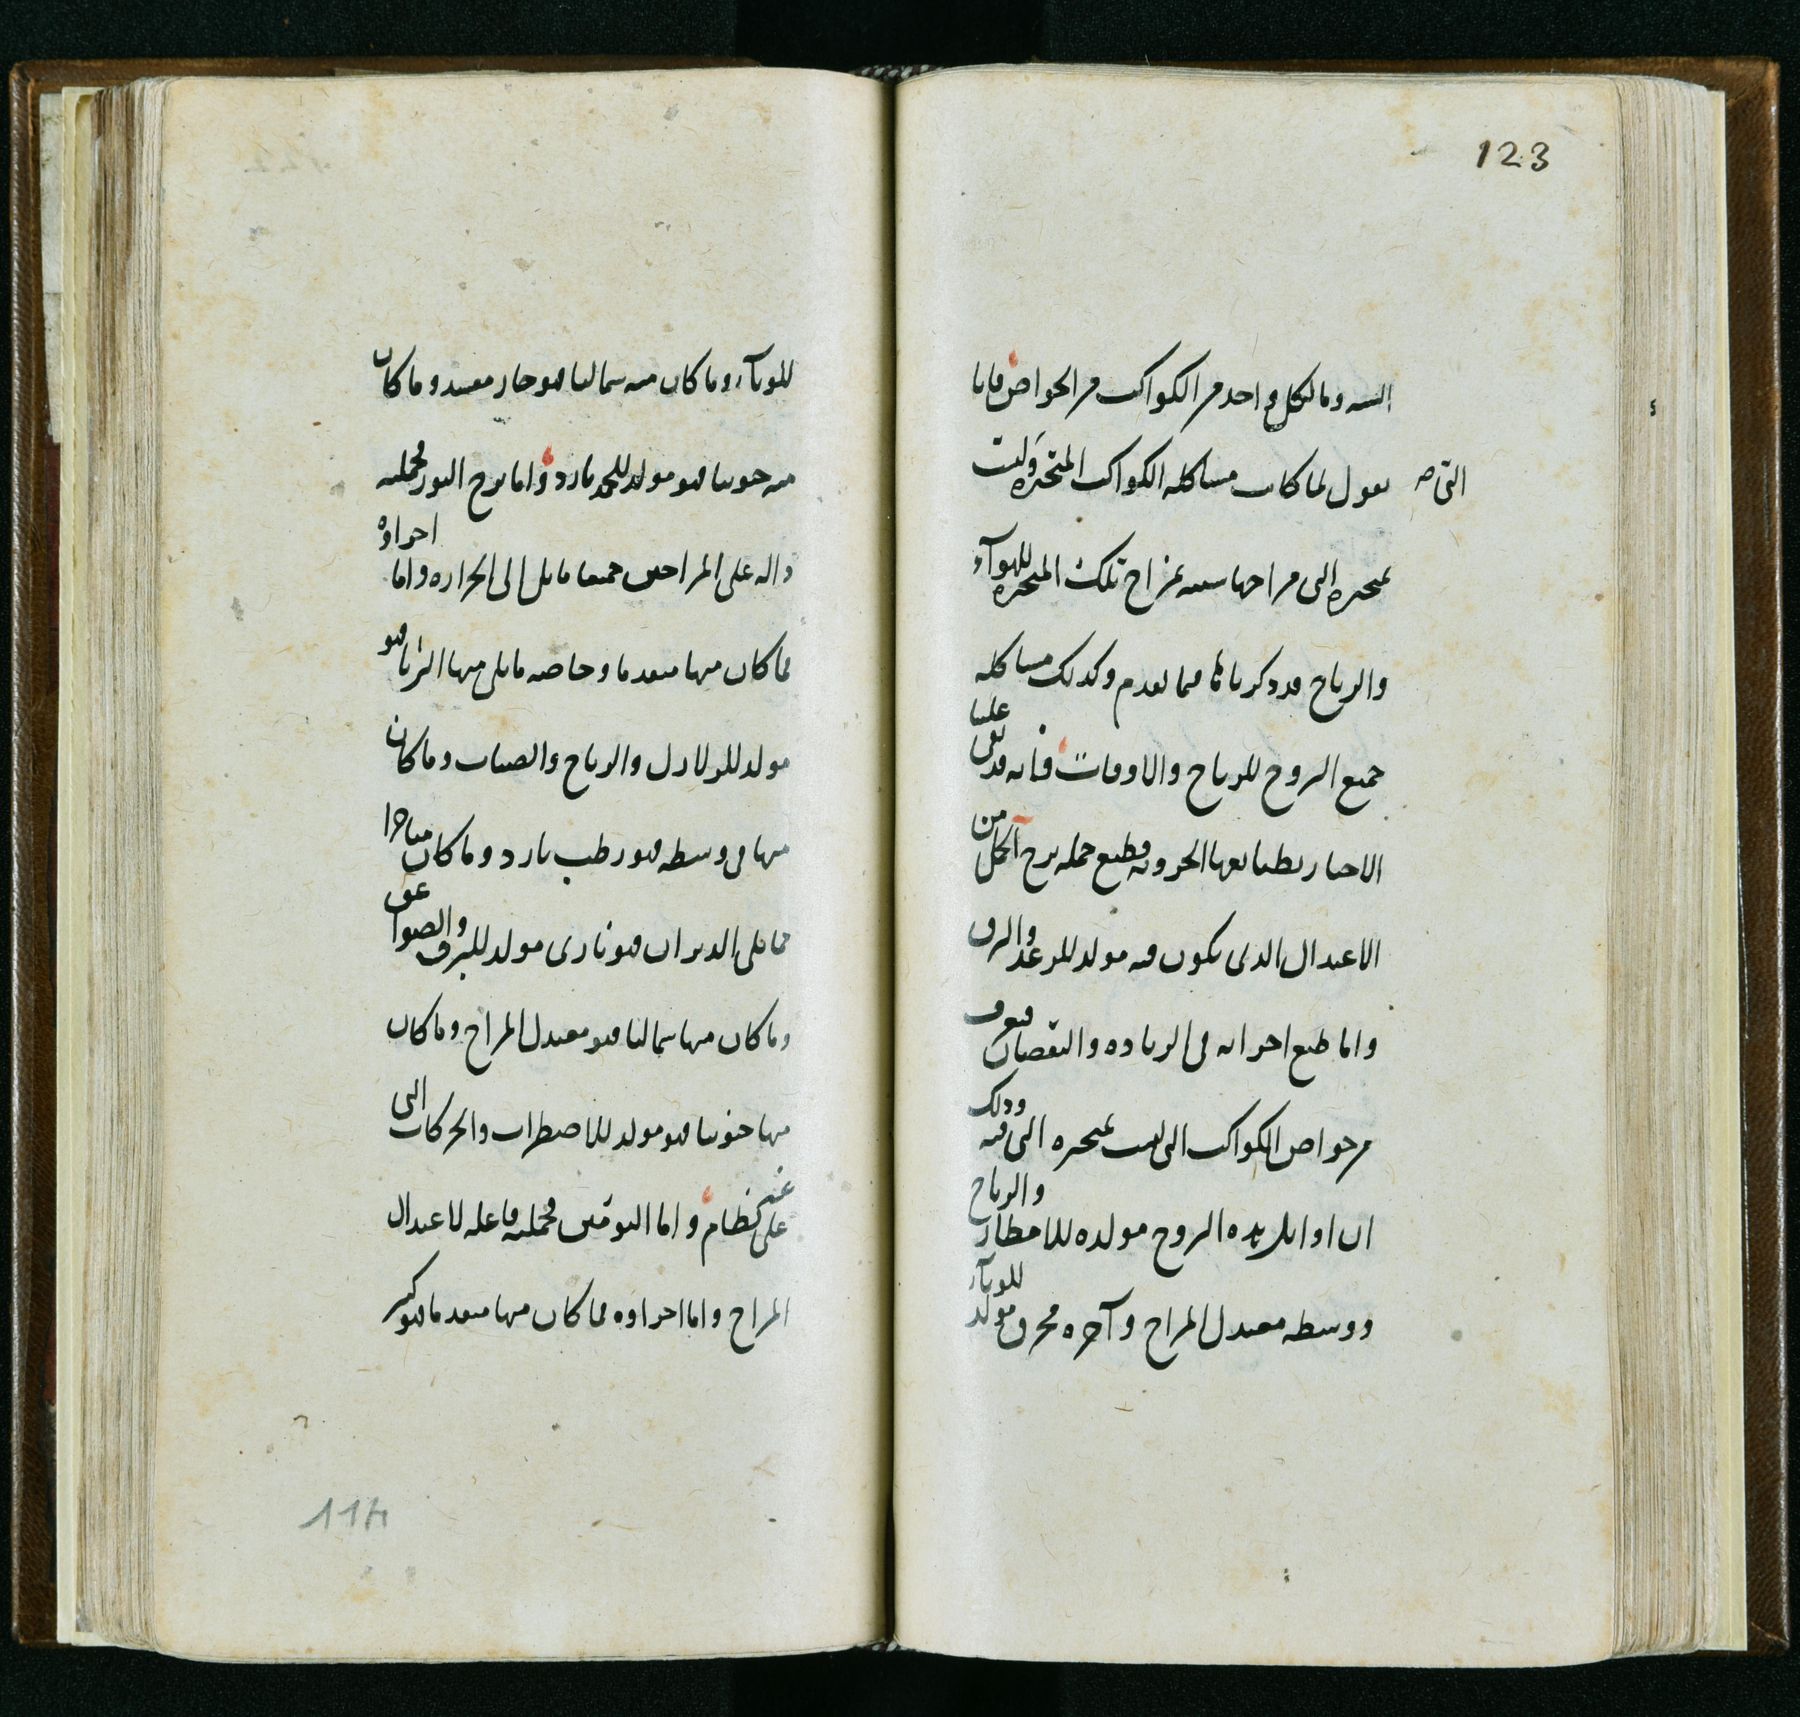 123
السه وما لكل واحد من الكواكب من الخواص فانا
نقول لما كانت مشاكله الكواكب المتحيره وليست
التى صح
بمتحيره التى مزاجها شبيه بمزاج تلك المتحيره للهوآء
والرياح قد ذكرناها فيما تقدم وكذلك مشاكله
جميع البروج للرياح والاوقات فانه قد بقى علينا
الاخبار بطبايعها الجزويه فطبع جمله برج الحمل من
الاعتدال الذى يكون فيه مولد للرعد والبرق
واما طبع اجزايه فى الزياده والنقصان فيعرف
من خواص الكواكب التى ليست بمتحيره التى فيه وذلك
ان اوايل هذه البروج مولده للامطار والرياح
ووسطه معتدل المزاج وآخره محرق مولد للوبآء
للوبآء وما كان منه شماليا فهو حار مفسد وما كان
منه جنوبيا فهو مولد للجمد بارد واما برج الثور فجملته
داله على المزاجين جميعا مايل الى الحراره واما اجزاوه
فما كان منها متقدما وخاصه ما يلى منها الثريا فهو
مولد للزلازل والرياح والضباب وما كان
منها فى وسطه فهو رطب بارد وما كان متاخرا
مما يلى الدبران فهو نارى مولد للبرق والصواعق
وما كان منها شماليا فهو معتدل المزاج وما كان
منها جنوبيا فهو مولد للاضطراب والحركات التى
على غير نظام واما التومين فجملته فاعله لاعتدال
المزاج واما اجزاوه فما كان منها متقدما فهو كثير
114